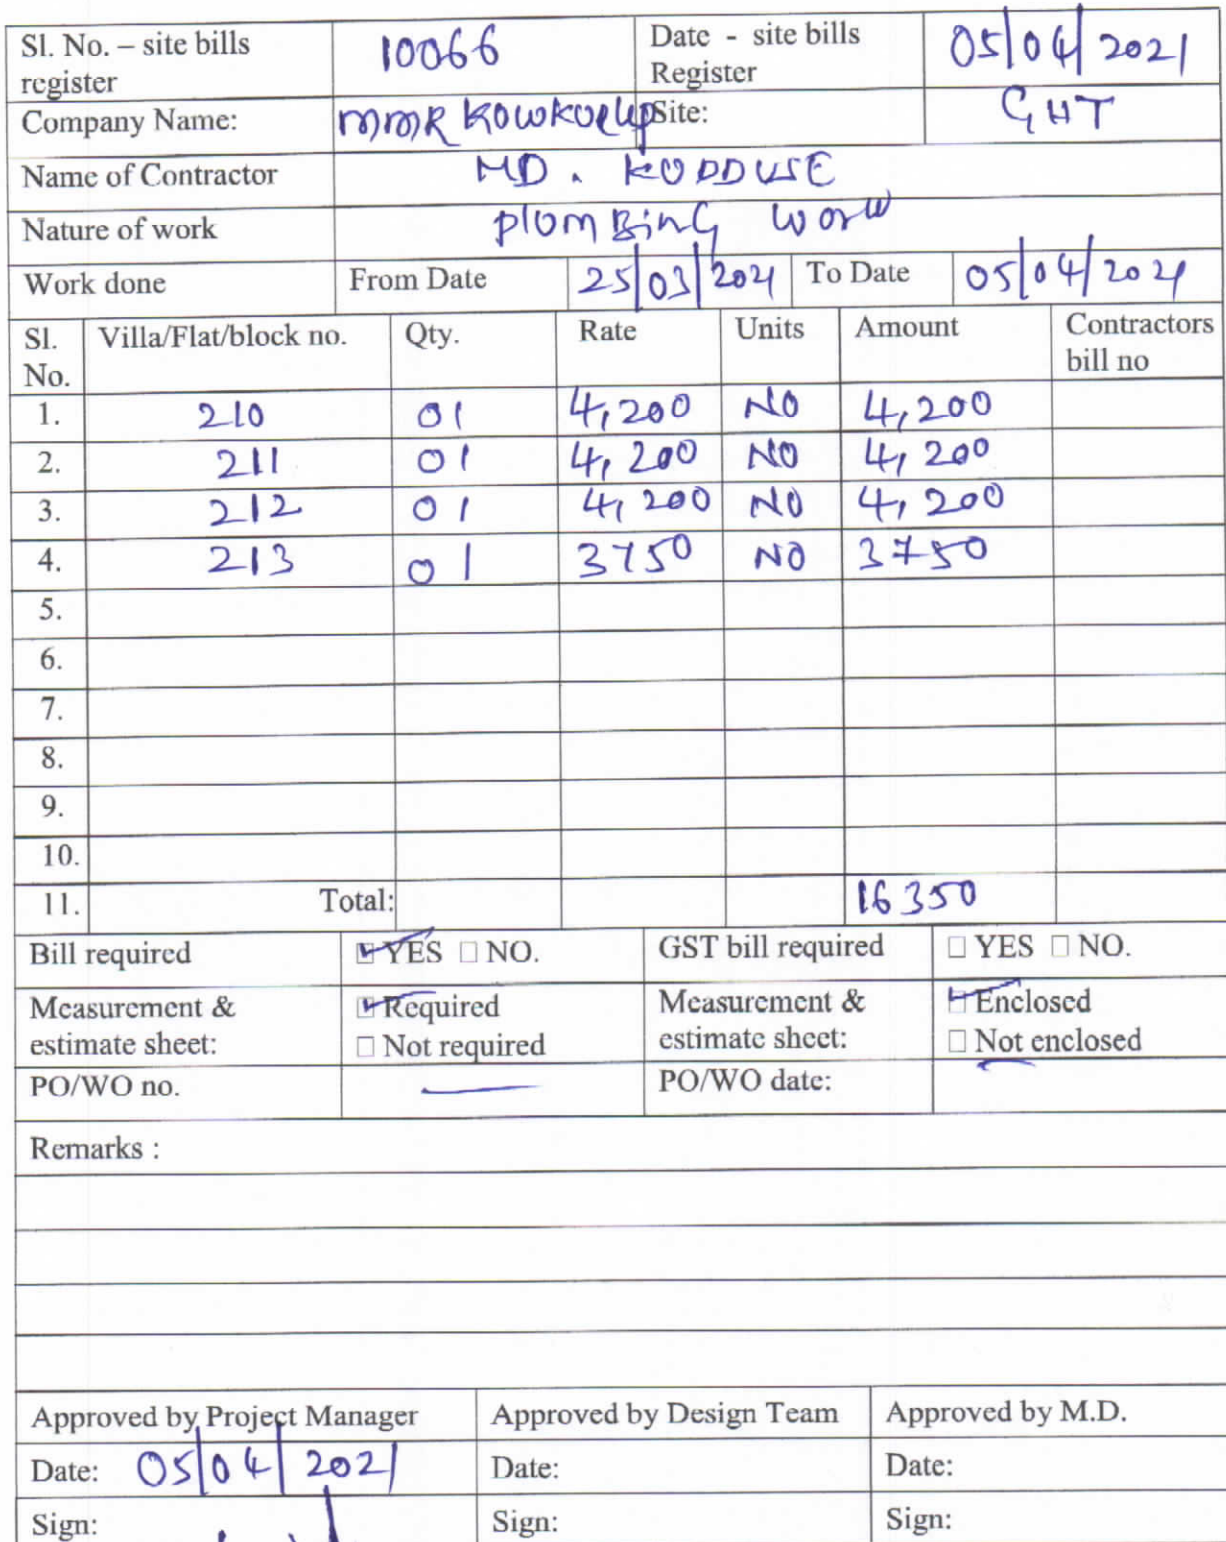 Sl. No. – site bills register 10066 Date - site bills Register 05/04/2021
Company Name: MMR KOWKULLP Site: GHT
Name of Contractor MD. KODDUSE
Nature of work PlumBing work
Work done From Date 25/03/2021 To Date 05/04/2021
Sl. No. Villa/Flat/block no. Qty. Rate Units Amount Contractors bill no
1. 210 01 4,200 NO 4,200
2. 211 01 4,200 NO 4,200
3. 212 01 4,200 NO 4,200
4. 213 01 3750 NO 3750
5.
6.
7.
8.
9.
10.
11. Total: 16350
Bill required ☑ YES ☐ NO. GST bill required ☐ YES ☐ NO.
Measurement & estimate sheet: ☑ Required ☐ Not required Measurement & estimate sheet: ☑ Enclosed ☐ Not enclosed
PO/WO no. — PO/WO date: —
Remarks :
Approved by Project Manager Approved by Design Team Approved by M.D.
Date: 05/04/2021 Date: Date:
Sign: Sign: Sign: